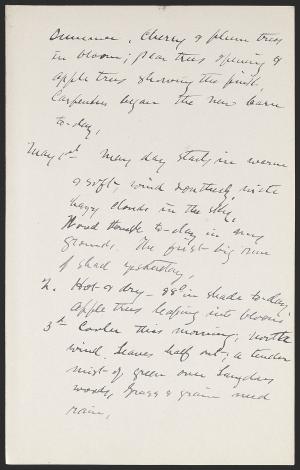 Dunnance. Cherry & plum trees
in bloom; pear trees opening &
apple trees showing the pink.
Carpenters began the new barn
to-day.
May 1st May day starts in warm
& soft, wind southerly, with
hazy clouds in the sky.
Wood thrush to-day in my
grounds. The first big run
of shad yesterday.
2. Hot & dry - 88° in shade to-day;
Apple trees leaping into bloom.
3rd Cooler this morning; north
wind. Leaves half out; a tender
mist of green over Langdons
woods, Grass & grain need
rain.